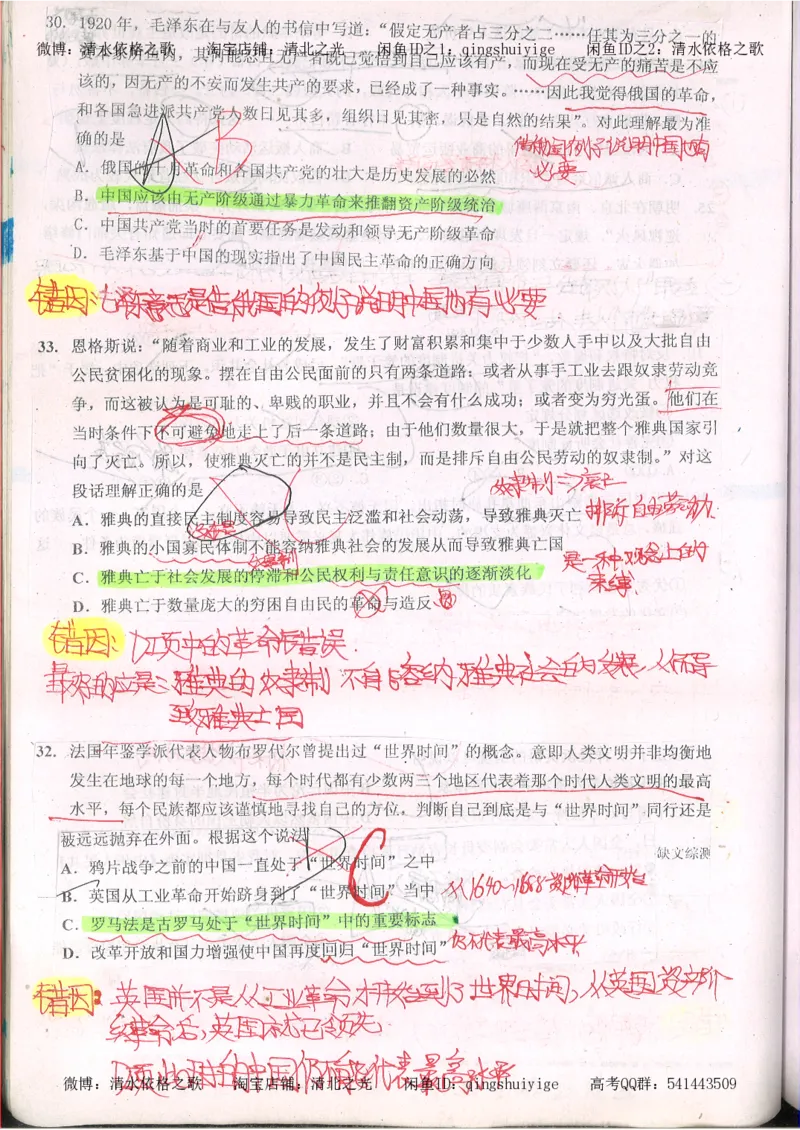 30. 1920 年，毛泽东在与友人的书信中写道：“假定无产者占三分之二……任其为三分之一的
微博：清水依格之歌 淘宝店铺：清北之光 闲鱼ID之1：qingshuiyige 闲鱼ID之2：清水依格之歌
其何能忍且无产者既已觉悟到自己应该有产，而现在受无产的痛苦是不应
该的，因无产的不安而发生共产的要求，已经成了一种事实。……因此我觉得俄国的革命，
和各国急进派共产党人数日见其多，组织日见其密，只是自然的结果”。对此理解最为准
确的是
B
俄国例子说明中国也有
必要
A. 俄国的十月革命和各国共产党的壮大是历史发展的必然
B. 中国应该由无产阶级通过暴力革命来推翻资产阶级统治
C. 中国共产党当时的首要任务是发动和领导无产阶级革命
D. 毛泽东基于中国的现实指出了中国民主革命的正确方向
错因：毛泽东意思是告俄国的例子说明中国也有必要
33. 恩格斯说：“随着商业和工业的发展，发生了财富积累和集中于少数人手中以及大批自由
公民贫困化的现象。摆在自由公民面前的只有两条道路：或者从事手工业去跟奴隶劳动竞
争，而这被认为是可耻的、卑贱的职业，并且不会有什么成功；或者变为穷光蛋。他们在
当时条件下不可避免地走上了后一条道路；由于他们数量很大，于是就把整个雅典国家引
向了灭亡。所以，使雅典灭亡的并不是民主制，而是排斥自由公民劳动的奴隶制。”对这
段话理解正确的是
奴隶制
A. 雅典的直接民主制度容易导致民主泛滥和社会动荡，导致雅典灭亡
排斥自由劳动
B. 雅典的小国寡民体制不能容纳雅典社会的发展从而导致雅典亡国
奴隶制
是一种观念上的
束缚
C. 雅典亡于社会发展的停滞和公民权利与责任意识的逐渐淡化
D. 雅典亡于数量庞大的穷困自由民的革命与造反
错因：D项中的革命错误.
最好的应是：雅典的奴隶制不能容纳雅典社会的发展，从而导
致雅典亡国
32. 法国年鉴学派代表人物布罗代尔曾提出过“世界时间”的概念。意即人类文明并非均衡地
发生在地球的每一个地方，每个时代都有少数两三个地区代表着那个时代人类文明的最高
水平，每个民族都应该谨慎地寻找自己的方位，判断自己到底是与“世界时间”同行还是
被远远抛弃在外面。根据这个说法
缺文综测
C
A. 鸦片战争之前的中国一直处于“世界时间”之中
B. 英国从工业革命开始跻身到了“世界时间”当中
从1640~1688资产阶级革命开始
C. 罗马法是古罗马处于“世界时间”中的重要标志
D. 改革开放和国力增强使中国再度回归“世界时间”
仍不代表最高水平
错因：英国并不是从工业革命才开始到了世界时间，从英国资产阶
级革命后，英国就已领先.
D项此时的中国仍不能代表最高水平
微博：清水依格之歌 淘宝店铺：清北之光 闲鱼ID：qingshuiyige 高考QQ群：541443509